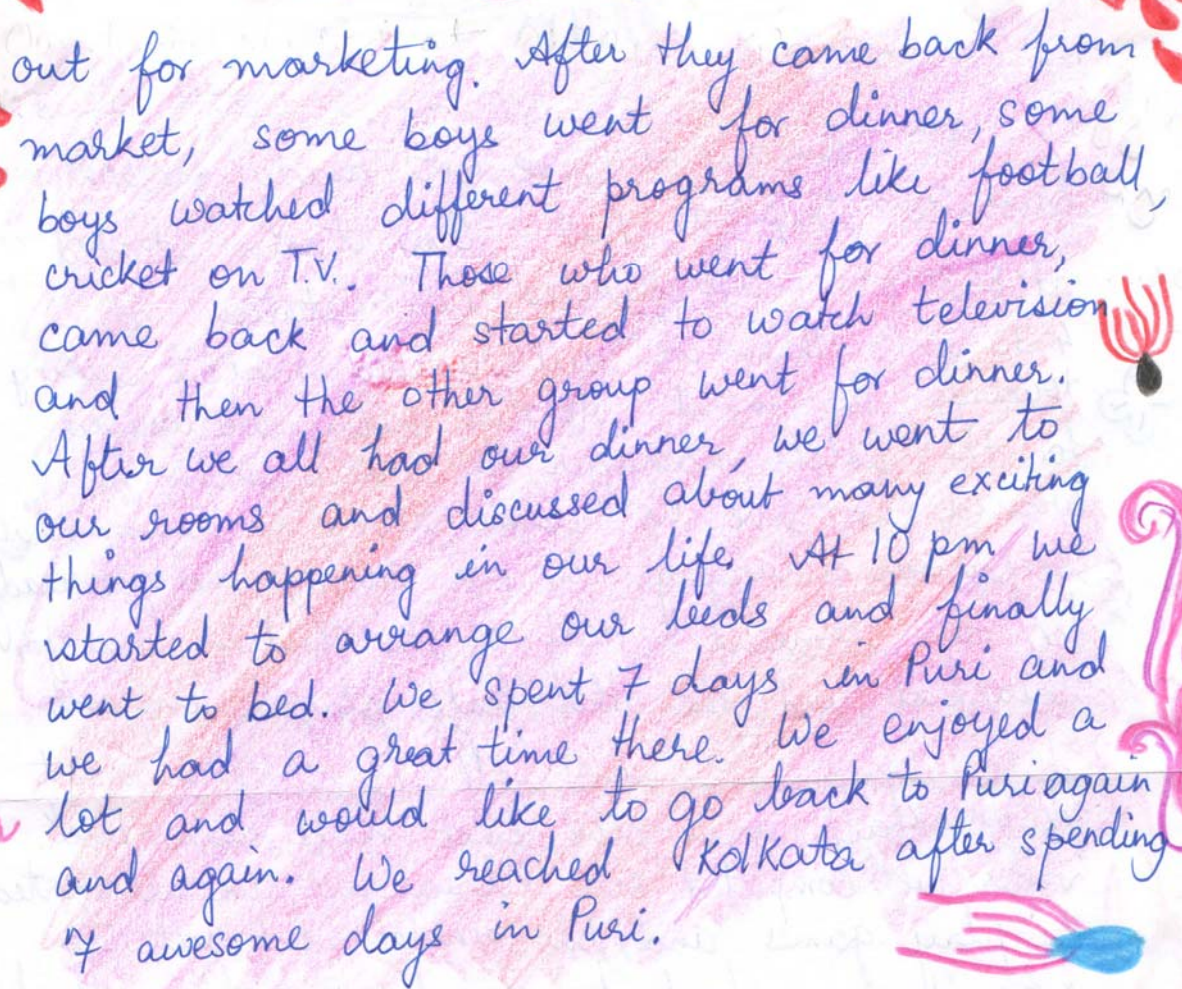 out for marketing. After they came back from
market, some boys went for dinner, some
boys watched different programs like football,
cricket on T.V.. Those who went for dinner,
came back and started to watch television
and then the other group went for dinner.
After we all had our dinner, we went to
our rooms and discussed about many exciting
things happening in our life. At 10 pm we
started to arrange our beds and finally
went to bed. We spent 7 days in Puri and
we had a great time there. We enjoyed a
lot and would like to go back to Puri again
and again. We reached Kolkata after spending
7 awesome days in Puri.